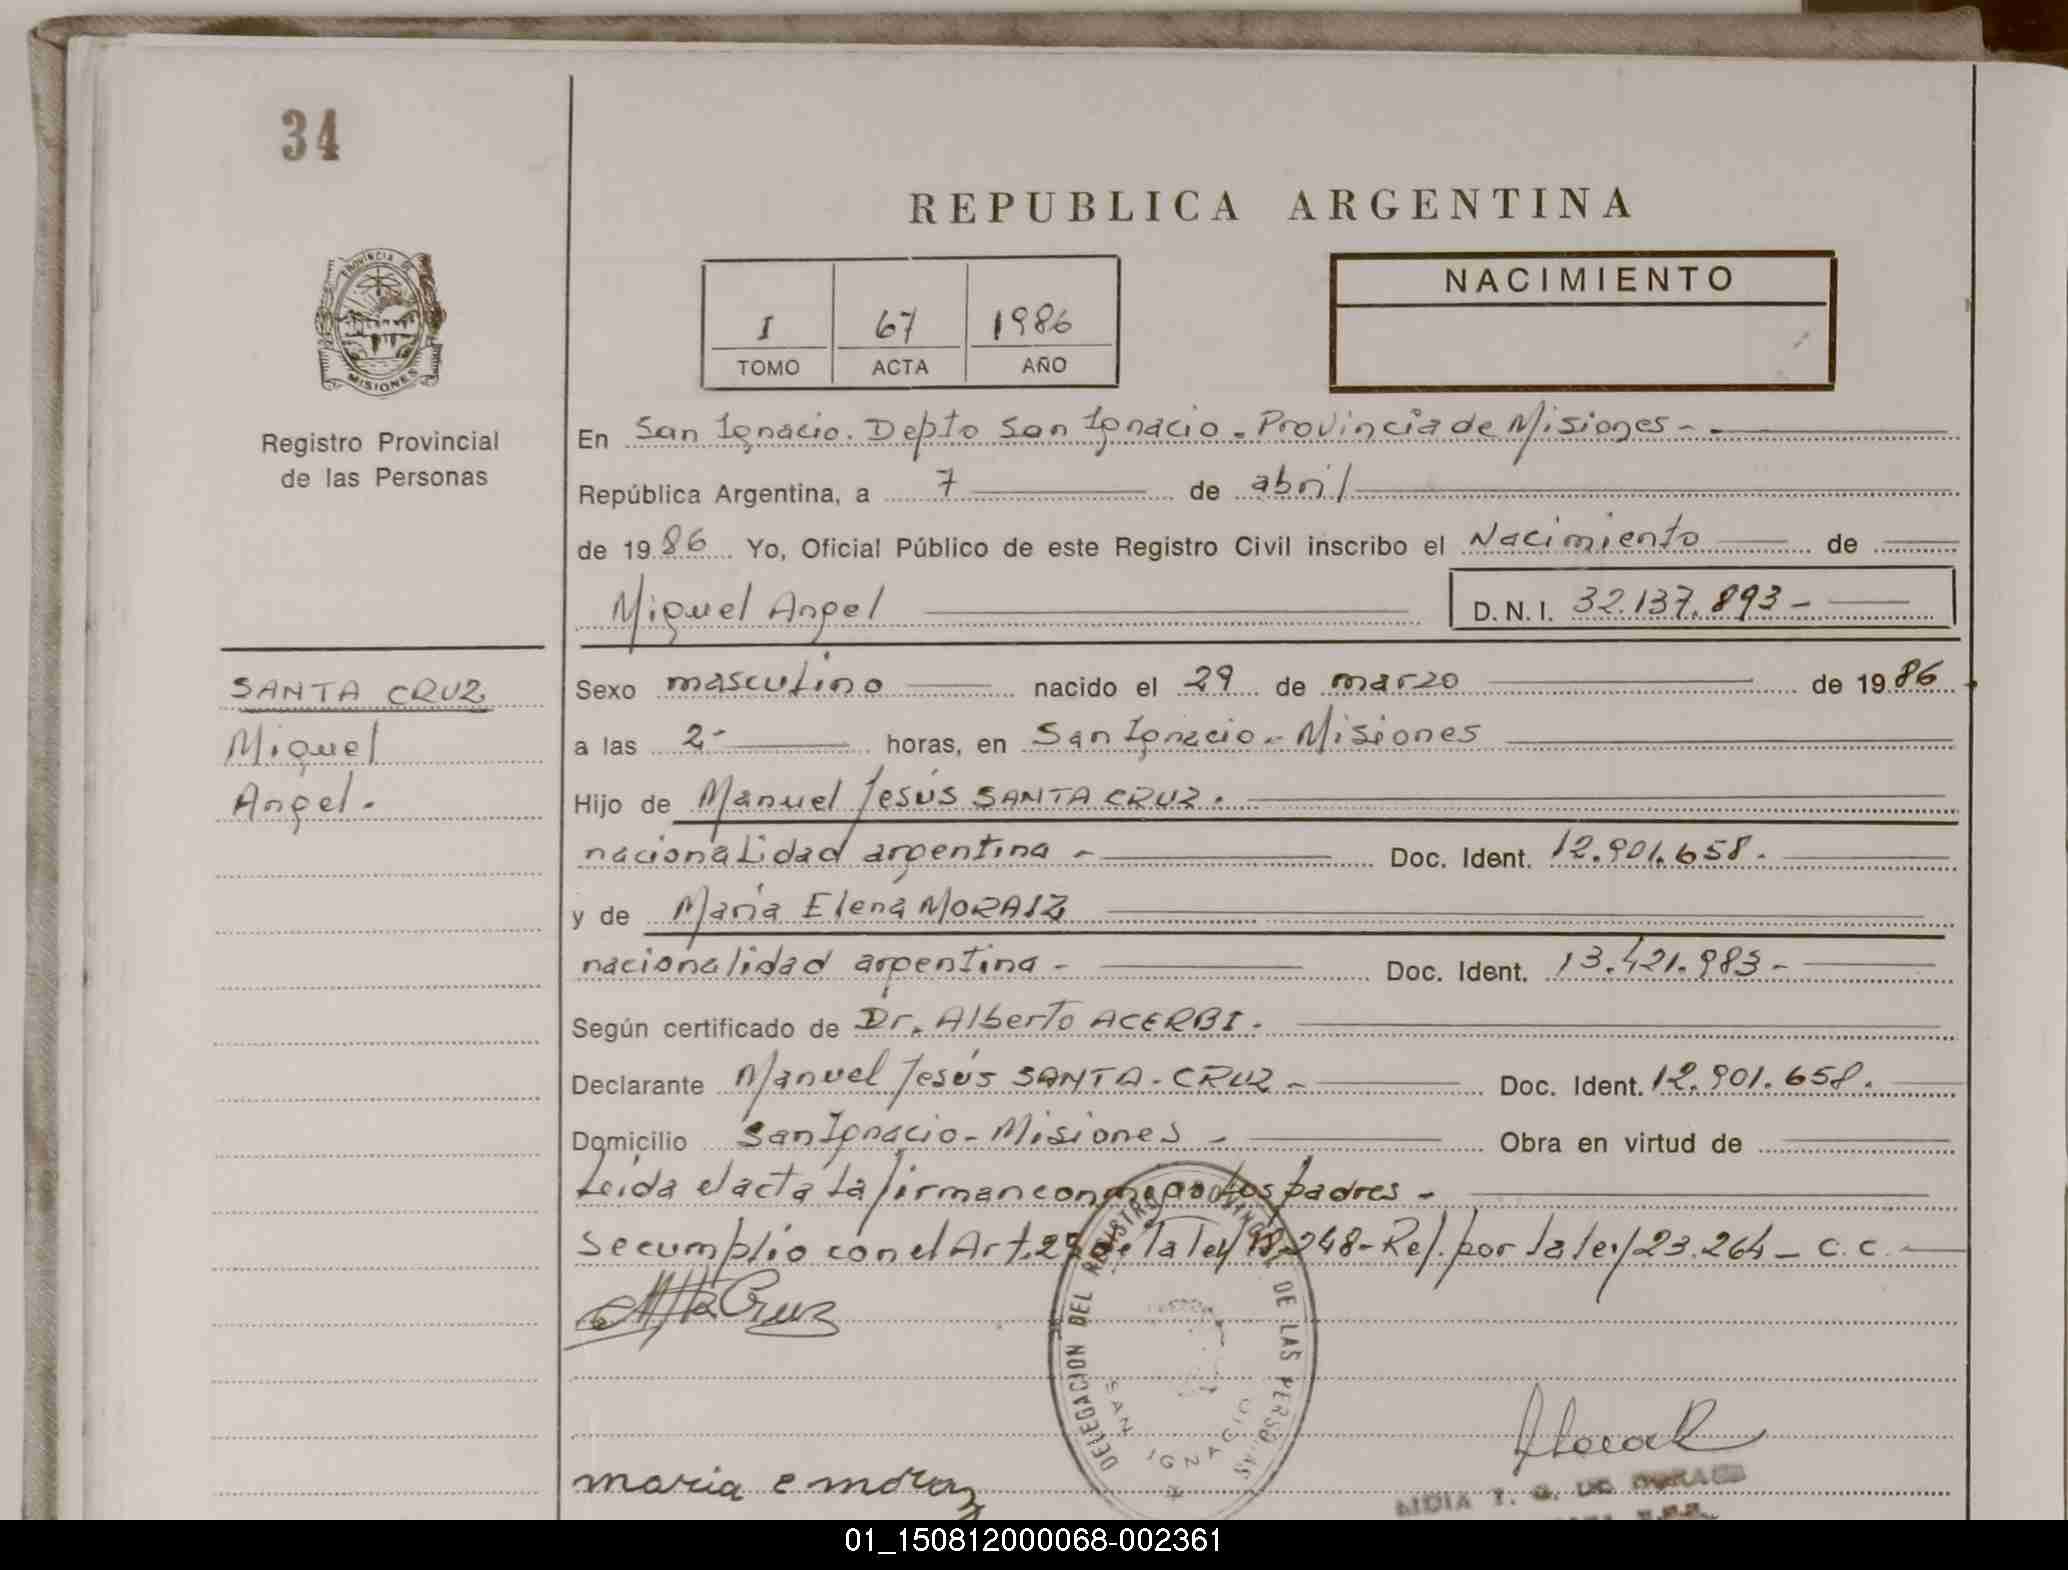 34
REPUBLICA ARGENTINA
PROVINCIA DE
MISIONES
Registro Provincial
de las Personas
I 67 1986
TOMO ACTA AÑO
NACIMIENTO
En San Ignacio. Depto San Ignacio. Provincia de Misiones -.
República Argentina, a 7 de abril
de 1986 Yo, Oficial Público de este Registro Civil inscribo el Nacimiento de
Miguel Angel D.N.I. 32.137.893-
SANTA CRUZ
Miguel
Angel.
Sexo masculino nacido el 29 de marzo de 1986
a las 2- horas, en San Ignacio - Misiones
Hijo de Manuel Jesús SANTA CRUZ.
nacionalidad argentina - Doc. Ident. 12.901.658.
y de María Elena MORAIZ
nacionalidad argentina - Doc. Ident. 13.421.983-
Según certificado de Dr. Alberto ACERBI.
Declarante Manuel Jesús SANTA-CRUZ - Doc. Ident. 12.901.658.
Domicilio San Ignacio - Misiones - Obra en virtud de
Leida el acta la firman conmigo los padres -
Se cumplio con el Art. de la ley 18.248-Ref. por la ley 23.264- C.C.
Sta Cruz
DELEGACION DEL REGISTRO PROVINCIAL DE LAS PERSONAS
SAN IGNACIO
maria e moraiz
T. G. DE
01_150812000068-002361